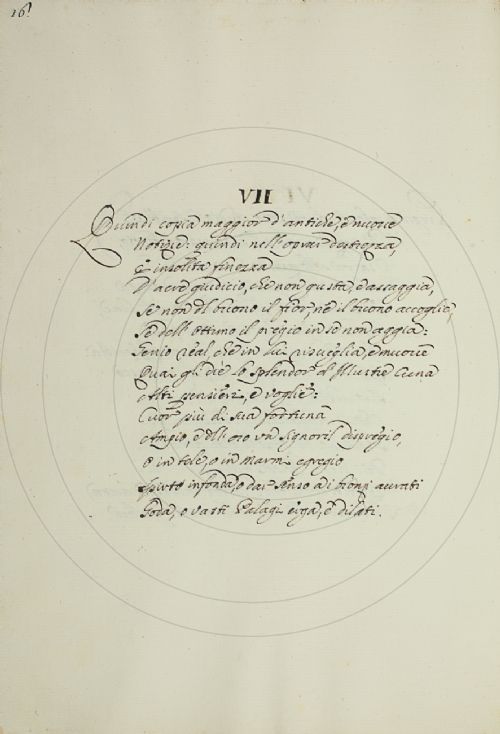 16.
VII
Quindi copia maggior d'antiche, e nuove
Notizie: quindi nell'oprar destrezza,
E insolita finezza
D'acre giudicio, che non gusta, e assaggia,
Se non del buono il fior, nè il buono accoglie,
Se dell'ottimo il pregio in se non aggia:
Genio real, che in lui risveglia, e muove
Quai gli diè lo splendor d'Illustre Cuna
Alti pensieri, e voglie:
Cuor più di sua fortuna
Ampio, e dell'oro un signoril dispregio,
O in tele, o in marmi egregio
Spirto infonda, o dar senso a i bronzi aurati
Goda, o vasti Palagi erga, e dilati.